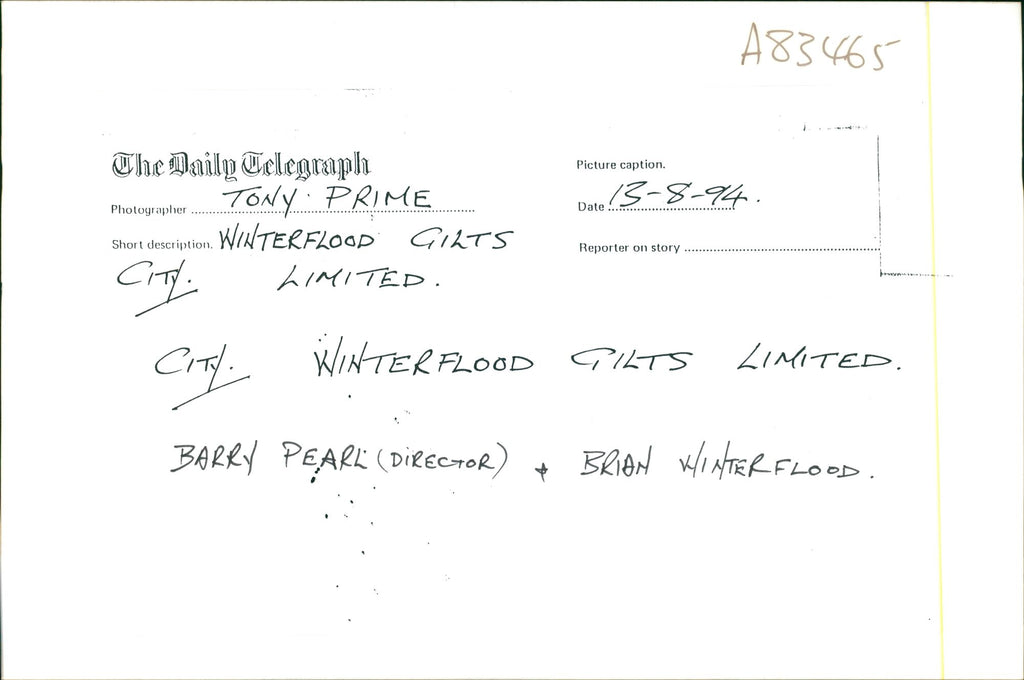 A83465
The Daily Telegraph
Picture caption.
Photographer TONY PRIME
Date 13-8-94.
Short description. WINTERFLOOD GILTS
Reporter on story
CITY. LIMITED.
CITY. WINTERFLOOD GILTS LIMITED.
BARRY PEARL (DIRECTOR) + BRIAN WINTERFLOOD.